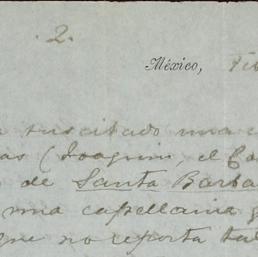 .2.
México,
suscitado una
(Joaquin, el
de Santa Barba
una capellania
que no reporta tal